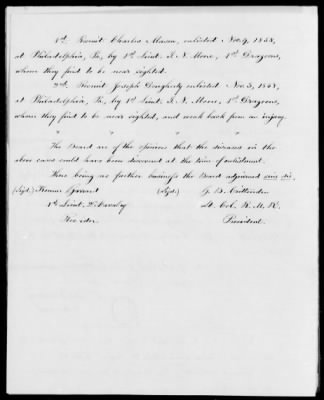 1st. Recruit Charles Mason, enlisted Nov. 9, 1858,
at Philadelphia, Pa, by 1st Lieut. I. N. Moore, 1st Dragoons,
whom they find to be near sighted.
2nd. Recruit Joseph Daugherty enlisted Nov. 3, 1858,
at Philadelphia, Pa, by 1st Lieut. I. N. Moore, 1st Dragoons,
whom they find to be near sighted, and weak back from an injury.
" " " "
The Board are of the opinion that the disease in the
above cases could have been discovered at the time of enlistment.
There being no further business the Board adjourned sine die.
(Sgd.) Kenner Garrard (Sgd.) G. B. Crittenden
1st Lieut. 2d Cavalry Lt. Col. R. M. R.
Recorder. President.